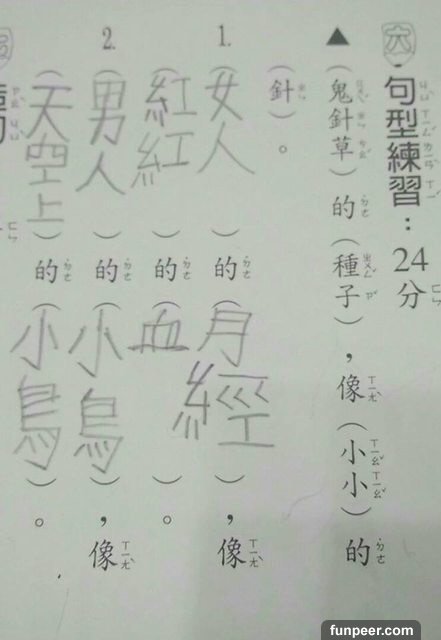 六、句型練習：24分
▲（鬼針草）的（種子），像（小小）的
（針）。
1.（女人）的（月經），像
（紅紅）的（血）。
2.（男人）的（小鳥），像
（天空上）的（小鳥）。
funpeer.com